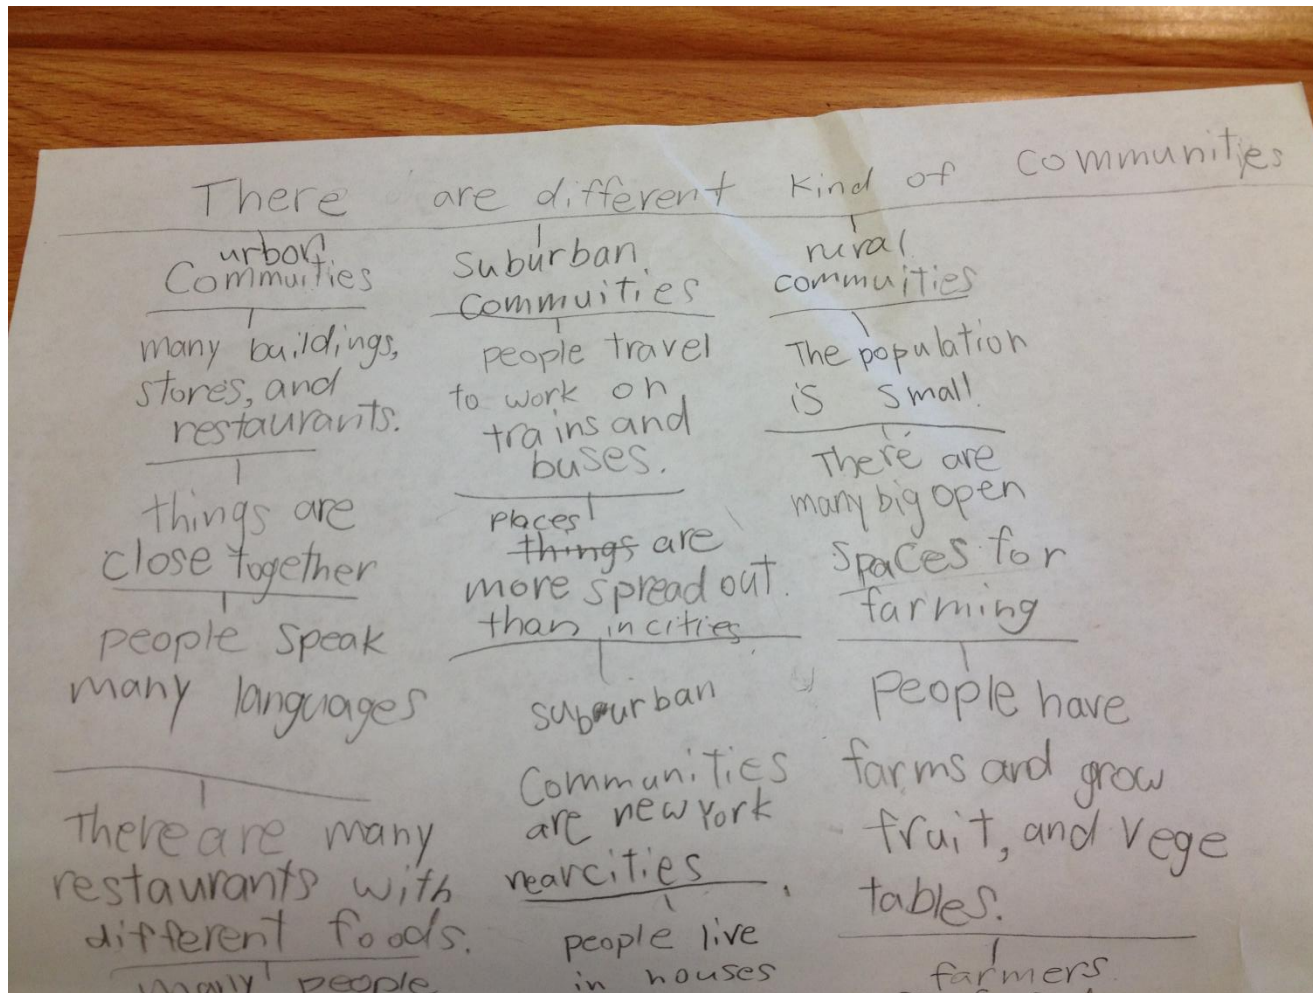 There are different kind of communities
urbon
Commuities
many buildings,
stores, and
restaurants.
things are
close together
people speak
many languages
There are many
restaurants with
different foods.
many people
Suburban
Commuities
people travel
to work on
trains and
buses.
places
things are
more spread out.
than in cities
suburban
Communities
are new york
near cities
people live
in houses
rural
commuities
The population
is small.
There are
many big open
spaces for
farming
People have
farms and grow
fruit, and vege
tables.
farmers